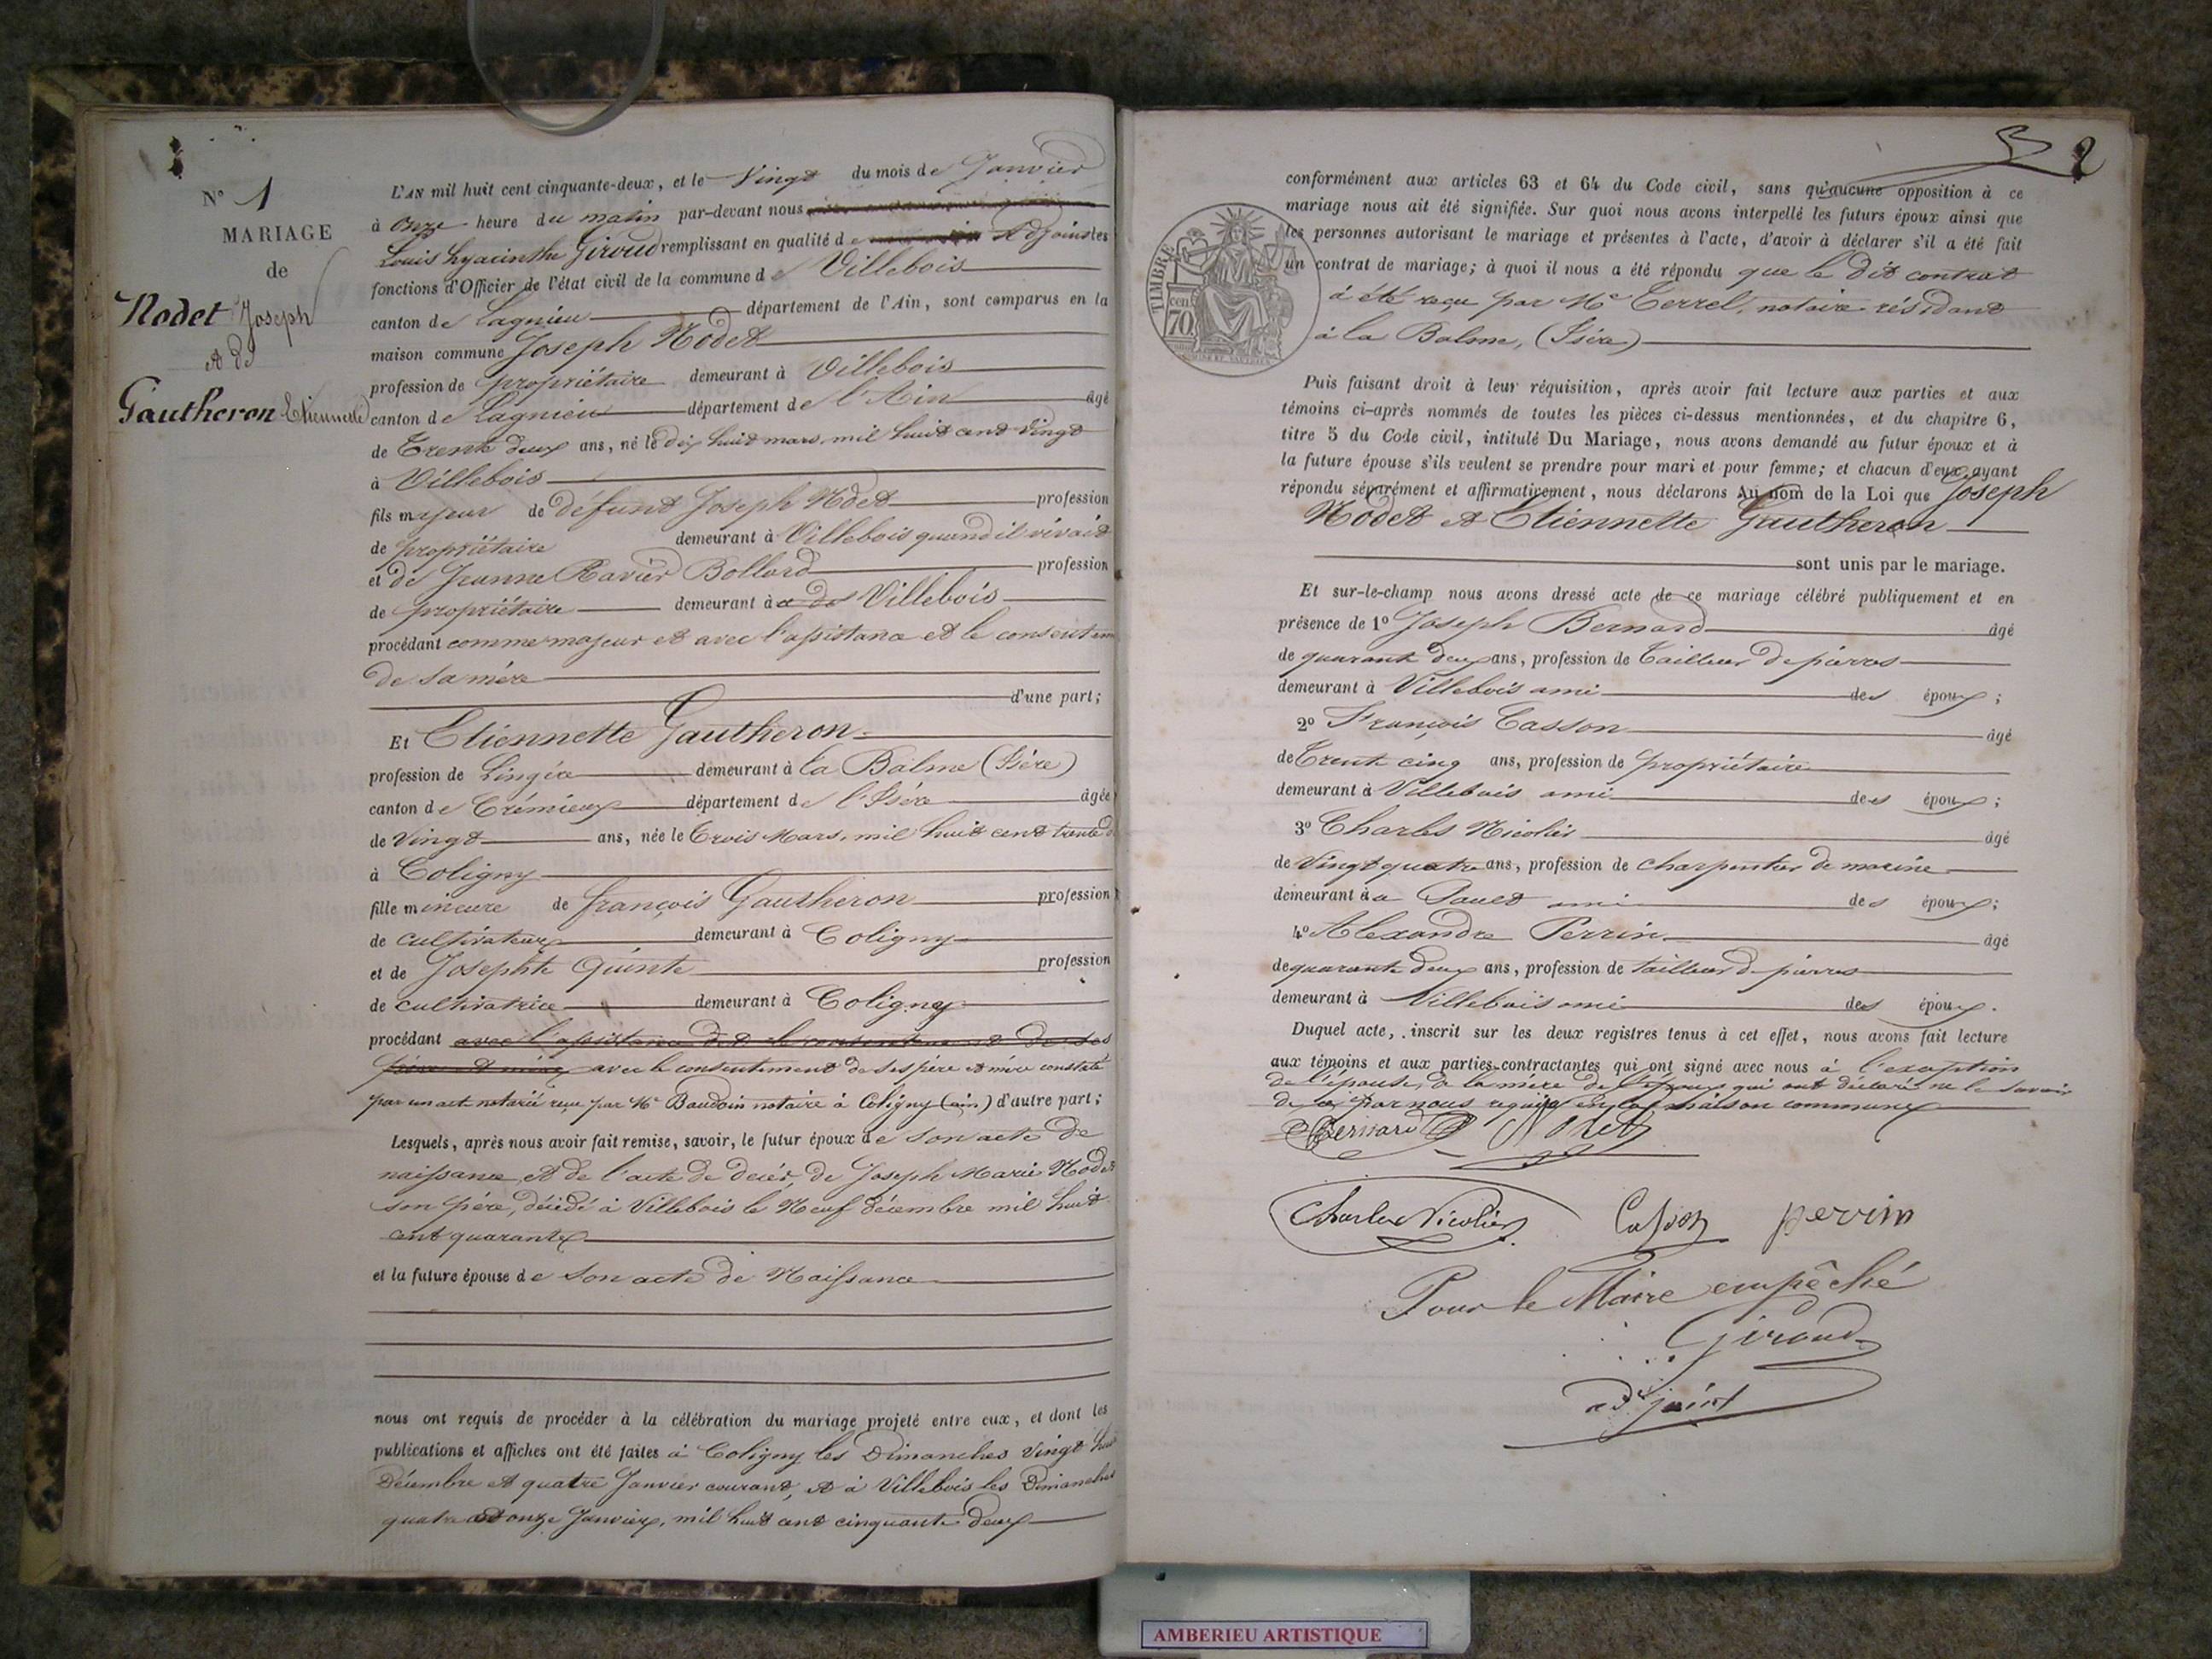 N° 1
MARIAGE
de
Nodet Joseph
et de
Gautheron Etiennette
L'AN mil huit cent cinquante-deux, et le Vingt du mois de Janvier
à onze heure du matin par-devant nous
Louis hyacinthe Giroud remplissant en qualité d Adjoint les
fonctions d'Officier de l'état civil de la commune de Villebois
canton de Lagnieu département de l'Ain, sont comparus en la
maison commune Joseph Nodet
profession de propriétaire demeurant à Villebois
canton de Lagnieu département de l'Ain âgé
de Trente deux ans, né le dix huit mars, mil huit cent vingt
à Villebois
fils majeur de défunt Joseph Nodet profession
de propriétaire demeurant à Villebois quand il vivait
et de Jeanne Ravier Bollard profession
de propriétaire demeurant à Villebois
procédant comme majeur et avec l'assistance et le consentem
de sa mère
d'une part;
Et Etiennette Gautheron
profession de Lingère demeurant à la Balme (Isère)
canton de Crémieux département de l'Isère âgée
de Vingt ans, née le Trois Mars, mil huit cent trente d
à Coligny
fille mineure de françois Gautheron profession
de cultivateur demeurant à Coligny
et de Josephte Quinte profession
de cultivatrice demeurant à Coligny
procédant avec l'assistance et le consentement de ses
père et mère avec le consentement de ses père et mère constaté
par un acte notarié reçu par Me Baudoin notaire à Coligny (ain) d'autre part;
Lesquels, après nous avoir fait remise, savoir, le futur époux de son acte de
naissance, et de l'acte de décès, de Joseph Marie Nodet
son père, décédé à Villebois le Neuf décembre mil huit
cent quarante
et la future épouse de son acte de Naissance
nous ont requis de procéder à la célébration du mariage projeté entre eux, et dont les
publications et affiches ont été faites à Coligny les Dimanches vingt huit
Décembre et quatre Janvier courant, et à Villebois les Dimanches
quatre et onze Janvier, mil huit cent cinquante deux
2
conformément aux articles 63 et 64 du Code civil, sans qu'aucune opposition à ce
mariage nous ait été signifiée. Sur quoi nous avons interpellé les futurs époux ainsi que
les personnes autorisant le mariage et présentes à l'acte, d'avoir à déclarer s'il a été fait
un contrat de mariage; à quoi il nous a été répondu que le dit contrat
à été reçu par Me Terrel, notaire résidant
à la Balme, (Isère)
TIMBRE
cen
70
Puis faisant droit à leur réquisition, après avoir fait lecture aux parties et aux
témoins ci-après nommés de toutes les pièces ci-dessus mentionnées, et du chapitre 6,
titre 5 du Code civil, intitulé Du Mariage, nous avons demandé au futur époux et à
la future épouse s'ils veulent se prendre pour mari et pour femme; et chacun d'eux ayant
répondu séparément et affirmativement, nous déclarons Au nom de la Loi que Joseph
Nodet et Etiennette Gautheron
sont unis par le mariage.
Et sur-le-champ nous avons dressé acte de ce mariage célébré publiquement et en
présence de 1° Joseph Bernard âgé
de quarante deux ans, profession de Tailleur de pierres
demeurant à Villebois ami des époux;
2° François Casson âgé
de Trente cinq ans, profession de propriétaire
demeurant à Villebois ami des époux;
3° Charles Nicolier âgé
de Vingt quatre ans, profession de charpentier de marine
demeurant à a Sault ami des époux;
4° Alexandre Perrin âgé
de quarante deux ans, profession de tailleur de pierres
demeurant à Villebois ami des époux.
Duquel acte, inscrit sur les deux registres tenus à cet effet, nous avons fait lecture
aux témoins et aux parties contractantes qui ont signé avec nous à l'exception
de l'épouse, de la mère de l'époux qui ont déclaré ne le savoir
de ce par nous requis en la maison commune
Bernard Nodet
Charles Nicolier Casson perrin
Pour le Maire empêché
Giroud
adjoint
AMBERIEU ARTISTIQUE